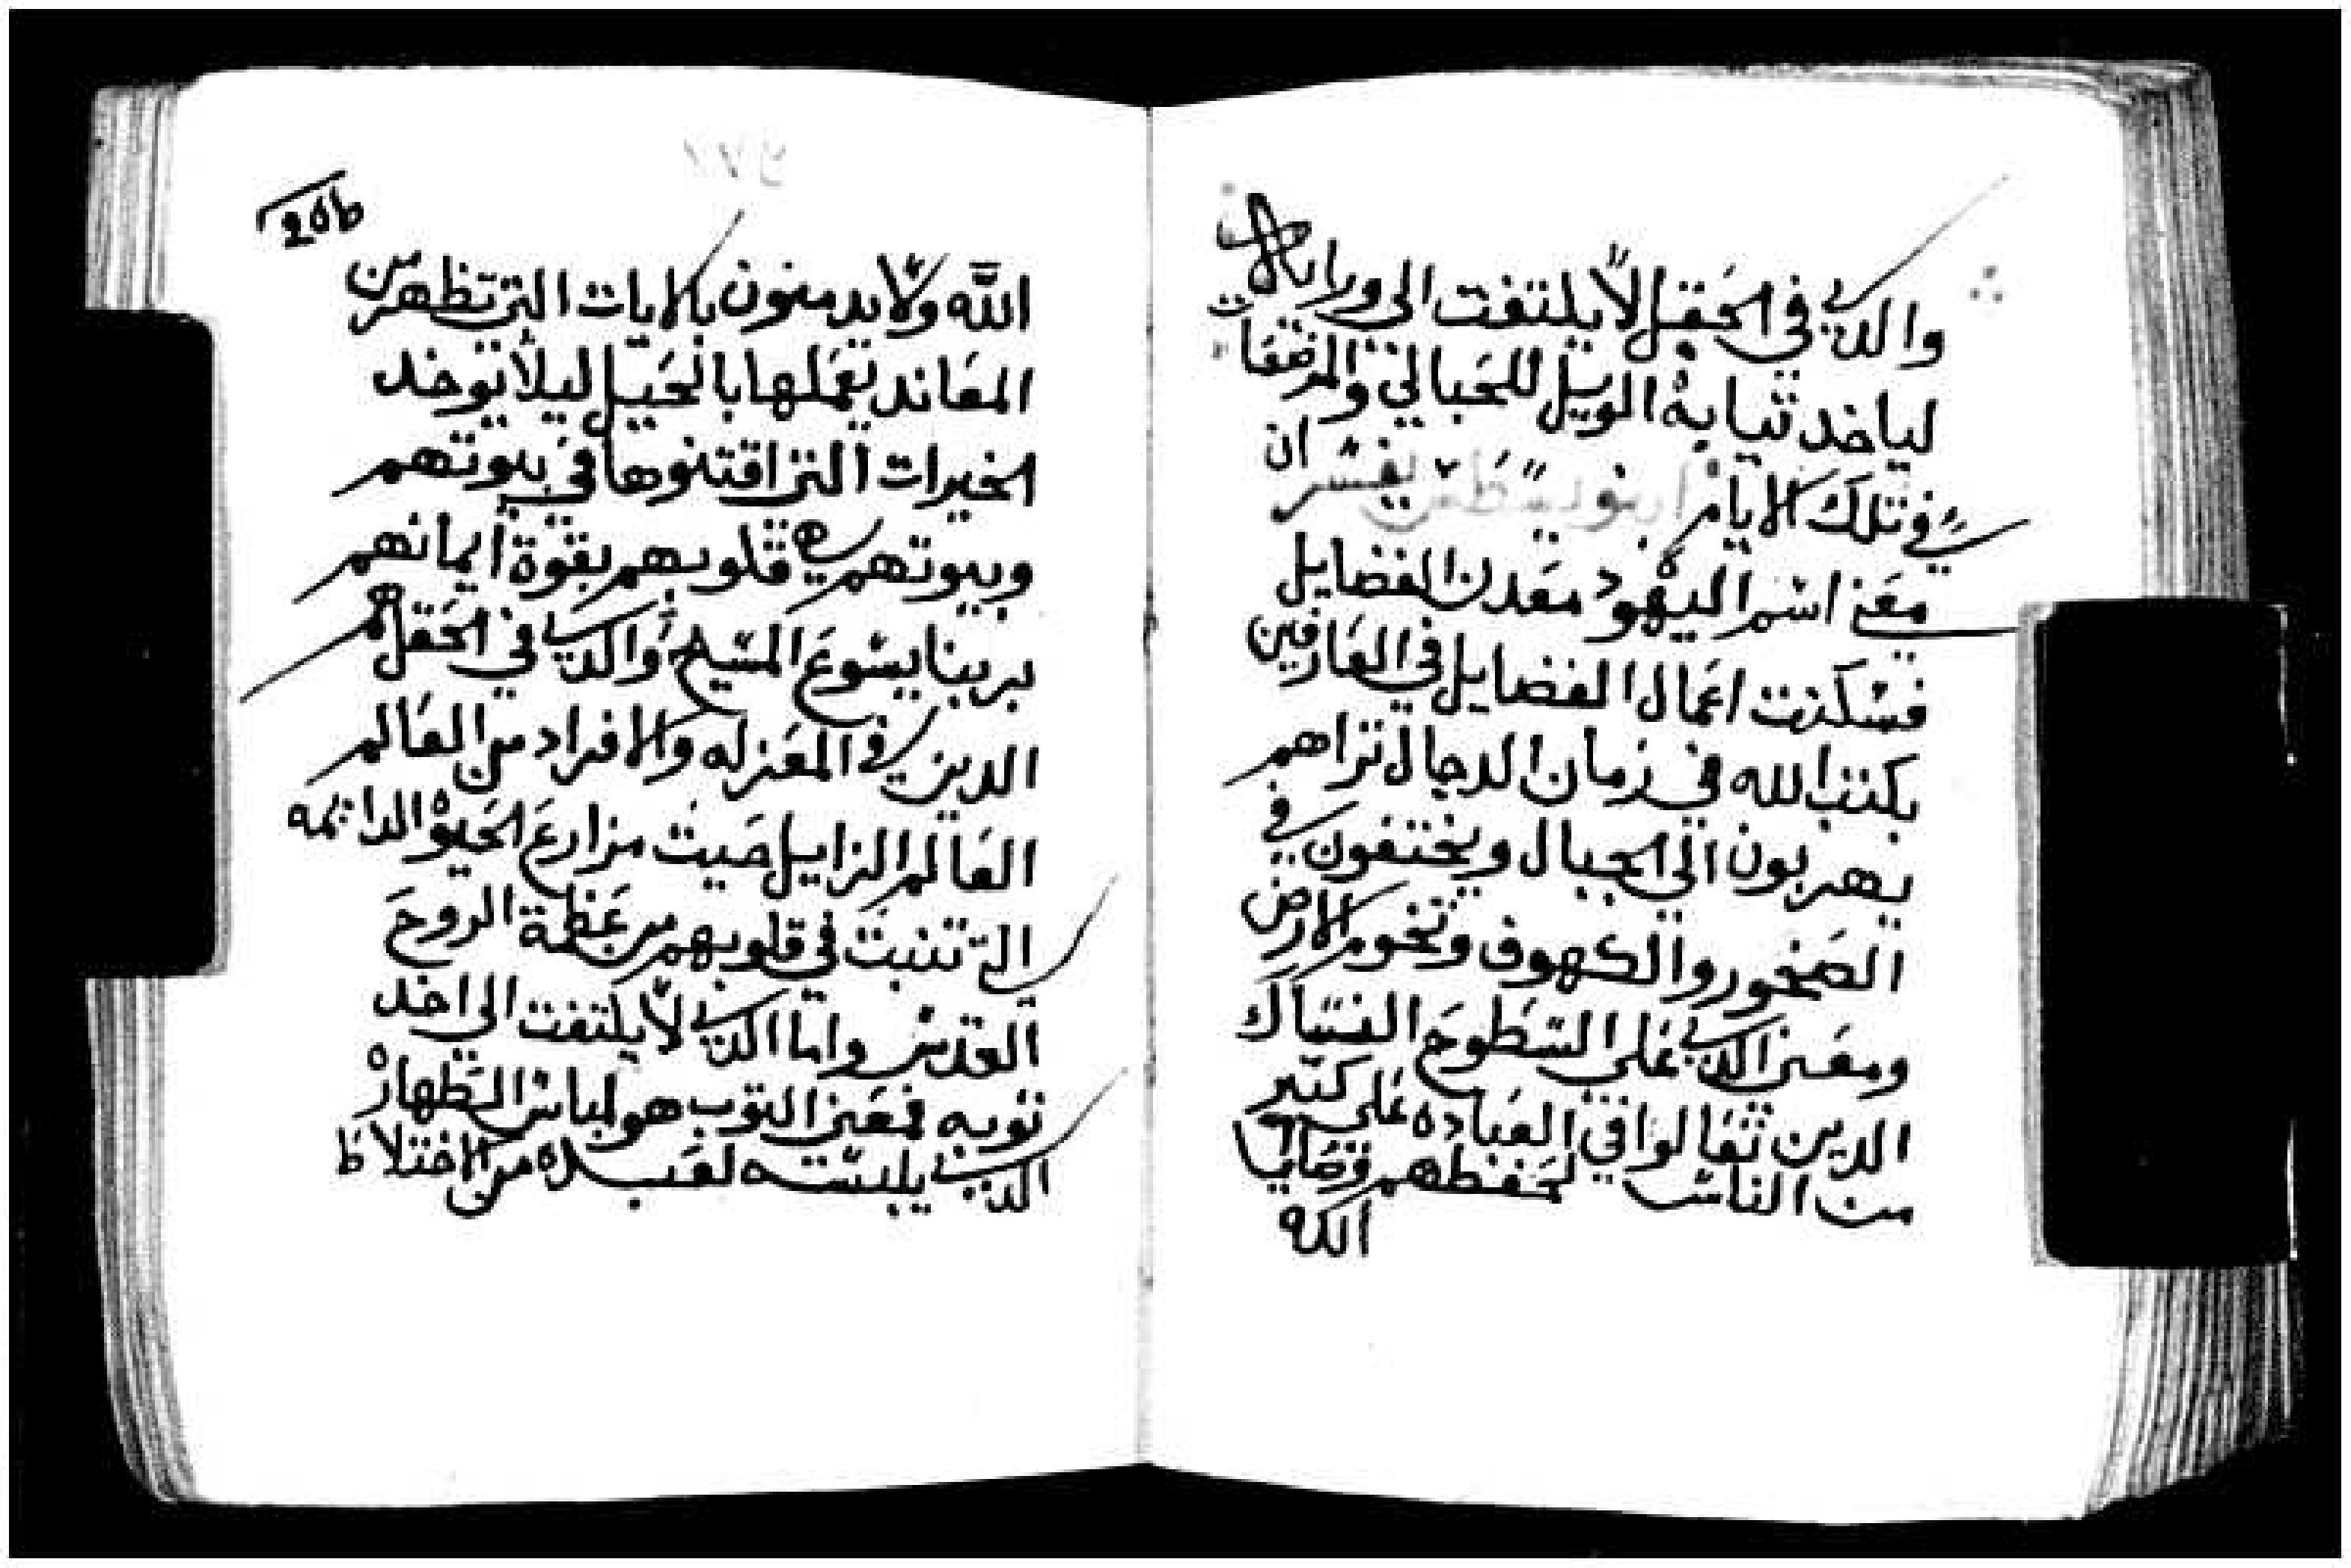 والدي في الحقل لا يلتفت الي ورايه
لياخد تيابه الويل للحبالي والمرضعات
في تلك الايام ابوليطس يفسر ان
معني اسم اليهود معدن الفضايل
فسكنت اعمال الفضايل في العارفين
بكتب الله في زمان الدجال تراهم
يهربون الي الجبال ويختفون في
الصخور والكهوف وتخوم الارض
ومعني الدي علي السطوح النساك
الدين تعالوا في العباده علي كتير
من الناس لحفظهم وصايا
الله
256
الله ولا يدمنون بالايات التي تظهر من
المعاند يعملها بالحيل ليلا توخد
الخيرات التي اقتنوها في بيوتهم
وبيوتهم هي قلوبهم بقوة ايمانهم
بربنا يسوع المسيح والدي في الحقل هم
الدين في المعزله والافراد من العالم
العالم الزايل حيت مزارع الحيوه الدائمه
التي تنبت في قلوبهم من عظمة الروح
القدس واما الدي لا يلتفت الي اخد
توبه فمعني التوب هو لباس الطهاره
الدي يلبسه لعبيده من الاختلاط